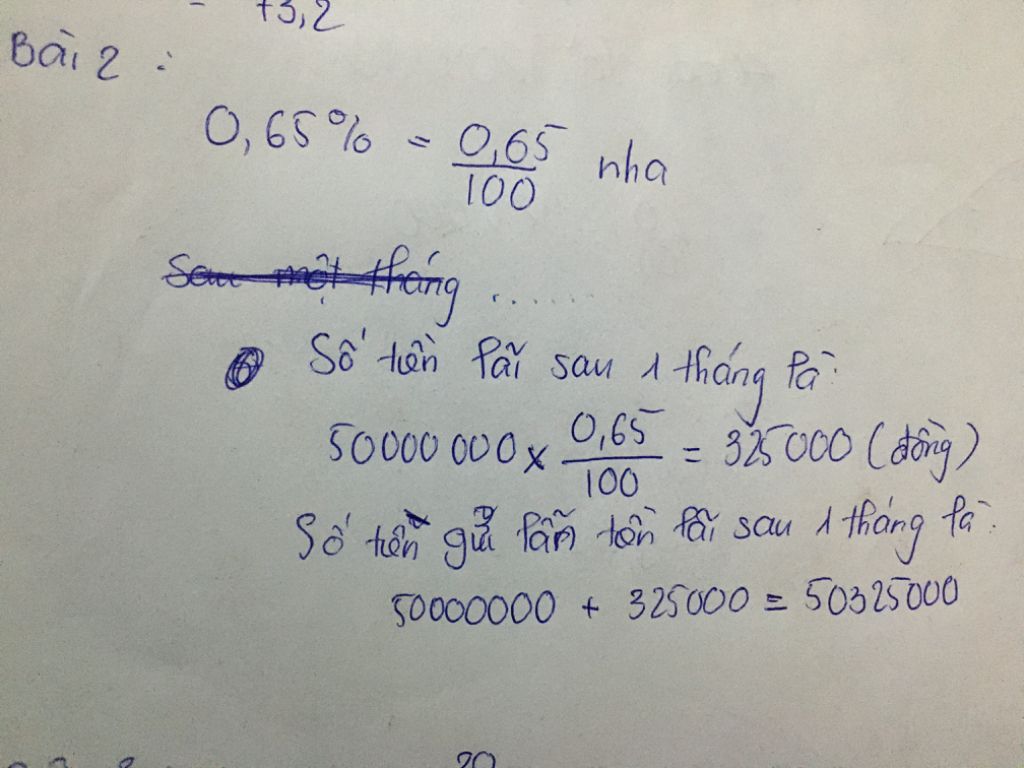 73,2
Bài 2 :
0,65% = 0,65/100 nha
Sau một tháng ......
Số tiền lãi sau 1 tháng là:
50000 000 x 0,65/100 = 325000 (đồng)
Số tiền gửi lẫn tiền lãi sau 1 tháng là:
50000000 + 325000 = 50325000
20